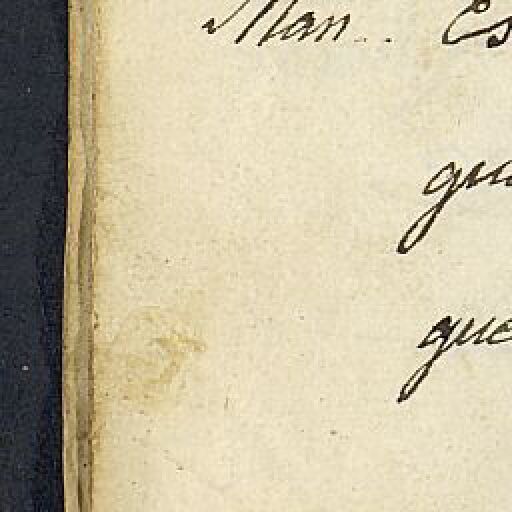 Man.. Es
gu
que